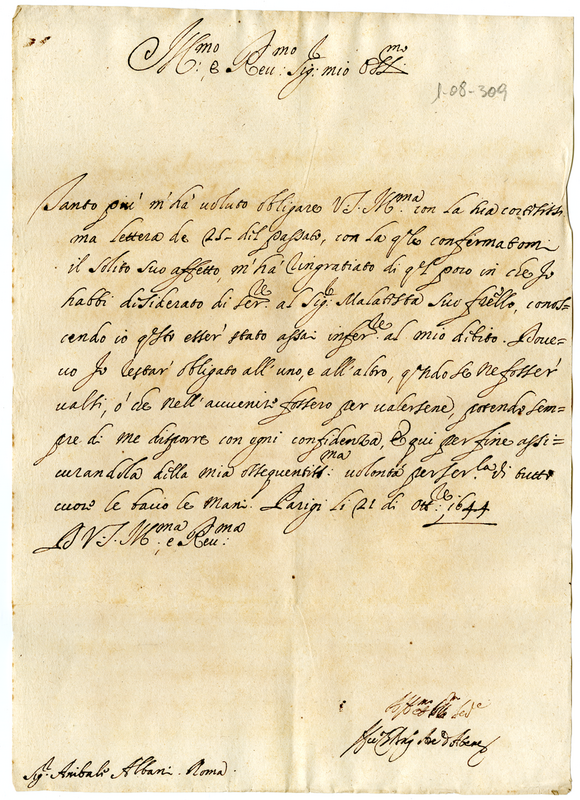 Ill.mo e Rev.mo Sig.r mio Oss.mo
1-08-309
Tanto piu' m'há voluto obligare V.S. Ill.ma con la sua cortesiss-
ma lettera de 25 del passato, con la q.le confermatomi
il solito suo affetto, m'há ringratiato di q.el poco in che Io
habbi disiderato di ser.le al Sig.r Malatista suo fr̃ello, conos-
cendo io q.sto esser' stato assai infer.re al mio debito. Dove-
vo Io restar' obligato all'uno, e all'altro, q.ndo se ne fosser'
valsi, ó che nell'avvenire fossero per valersene, potendo sem-
pre di me disporre con ogni confidenza, E qui per fine assi-
curandola della mia ossequentiss.ma volontá per ser.la di tutto
cuore le bacio le mani. Parigi li 21 di Ott.re 1644
D V.S. Ill.ma e Rev.ma
Sig.r Anibale Albani. Roma.